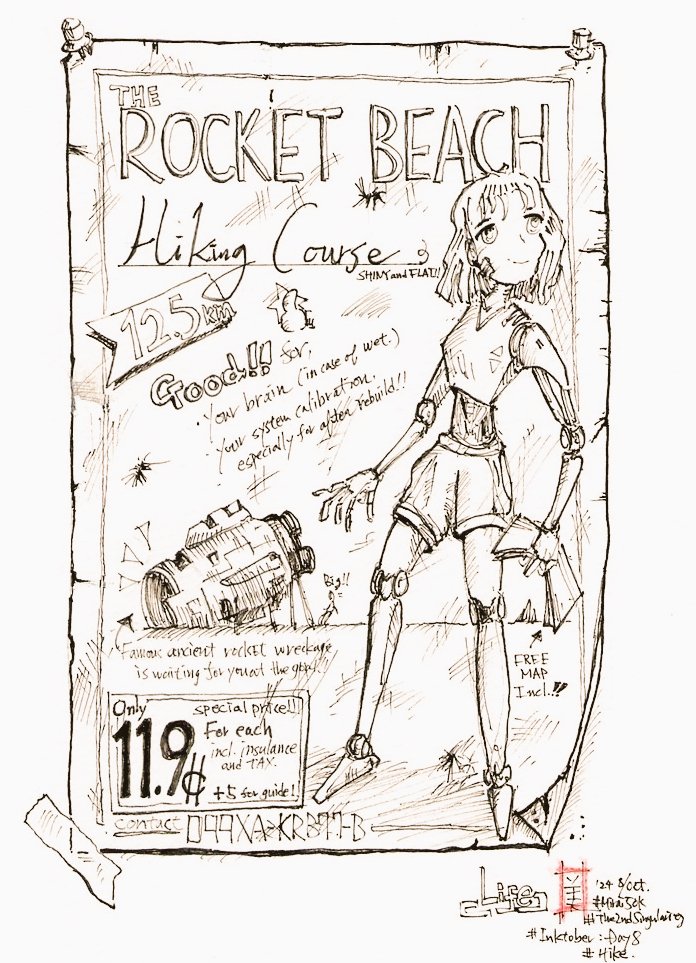 THE
ROCKET BEACH
Hiking Course
SHINY and FLAT!!
12.5km
Good!! for,
・Your brain (in case of wet.)
・Your system calibration.
especially for after rebuild!!
Big!!
Famous ancient rocket wreckage
is waiting for you at the
FREE
MAP
Incl.!!
Only
special price!!
11.9¢
For each
incl. insulance
and TAX.
+5 for guide!
contact
Life
美
'24 8/Oct.
#Mirai5ck
#The2ndSingularity
#Inktober : Day 8
#Hike.